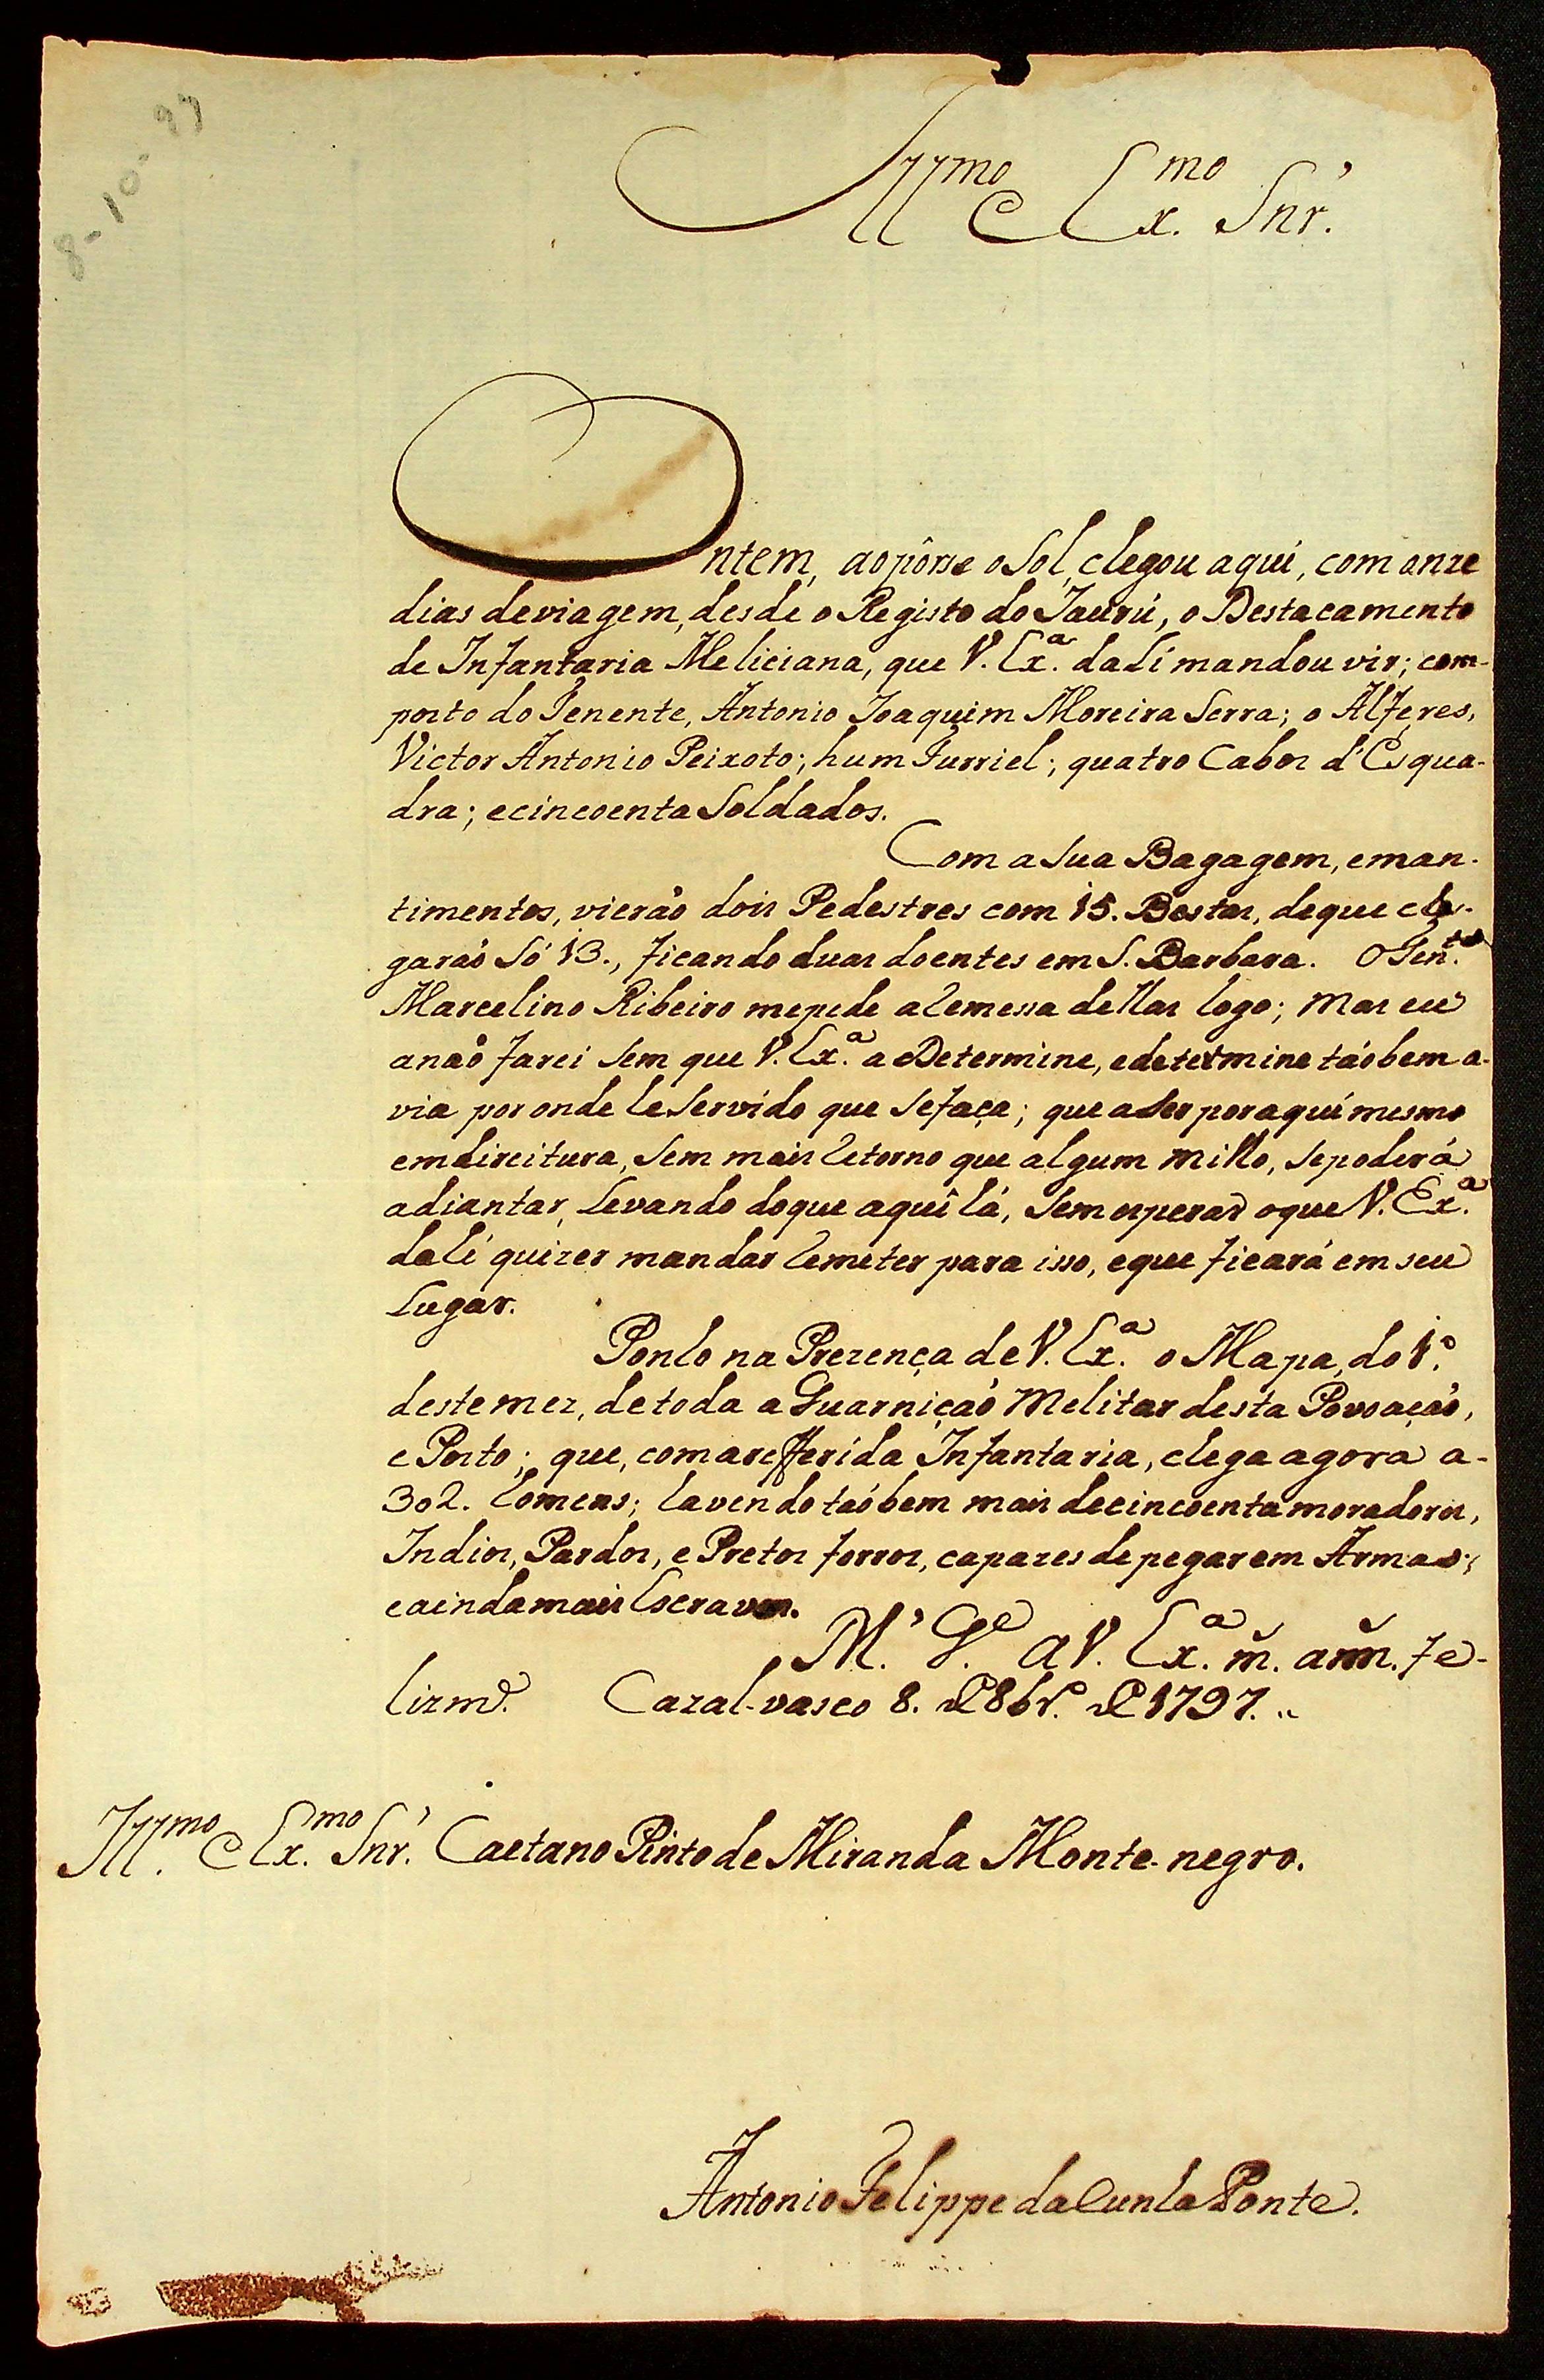 8-10-97
Ill.mo e Ex.mo Snr.
Ontem, ao pôrse o Sol, chegou aqui, com onze
dias de viagem, desde o Registo do Jaurú, o Destacamento
de Infantaria Meliciana, que V. Ex.a dahi mandou vir; com-
posto do Tenente, Antonio Joaquim Moreira Serra; o Alferes,
Victor Antonio Peixoto; hum Furriel; quatro Cabos d'Esqua-
dra; e cincoenta Soldados.
Com a Sua Bagagem, e man-
timentos, vierão dois Pedestres com 15. Bestas, de que che-
garão Só 13., ficando duas doentes em S. Barbara. O Ten.te
Marcelino Ribeiro me pede a Remessa dellas logo; mas eu
a não farei Sem que V. Ex.a a Determine, e determine tãobem a-
via por onde he Servido que Se faça; que a Ser por aqui mesmo
em direitura, Sem mais Retorno que algum milho, Se poderá
adiantar, Levando do que aqui há, Sem esperar o que V. Ex.a
dahi quizer mandar Remeter para isso, e que ficará em seu
Lugar.
Ponho na Prezença de V. Ex.a o Mapa, do 1.º
deste mez, de toda a Guarnição Melitar desta Povoação,
e Porto; que, com a refferida Infantaria, chega agora a-
302. homens; havendo tãobem mais de cincoenta moradores,
Indios, Pardos, e Pretos forros, capazes de pegar em Armas;
e ainda mais Escravos.
M.' G.e a V. Ex.a m. ann. fe-
lizm.e Cazal-vasco 8. de 8br.o de 1797.
Ill.mo e Ex.mo Snr. Caetano Pinto de Miranda Monte-negro.
Antonio Felippe da Cunha Ponte.